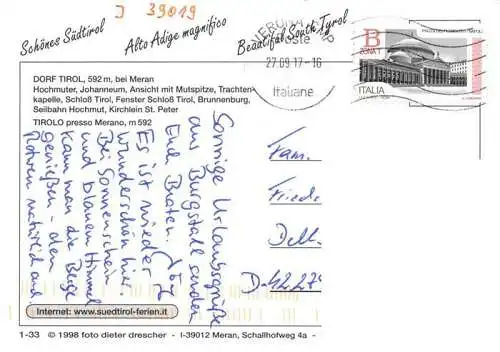 J 39019
Schönes Südtirol
Alto Adige magnifico
Beautiful South Tyrol
DORF TIROL, 592 m, bei Meran
Hochmuter, Johanneum, Ansicht mit Mutspitze, Trachten-
kapelle, Schloß Tirol, Fenster Schloß Tirol, Brunnenburg,
Seilbahn Hochmut, Kirchlein St. Peter
TIROLO presso Merano, m 592
Poste
27.09.17-16
Italiane
B
ZONA 1
ITALIA
Sonnige Urlaubsgrüße
aus Burgstall senden
Euch
Es ist wieder
wunderschön hier.
Bei Sonnenschein
und blauem Himmel
kann man die Berge
genießen - den
Roten natürlich auch
Fam.
Dell
D-4227
Internet: www.suedtirol-ferien.it
1-33 © 1998 foto dieter drescher - I-39012 Meran, Schallhofweg 4a -